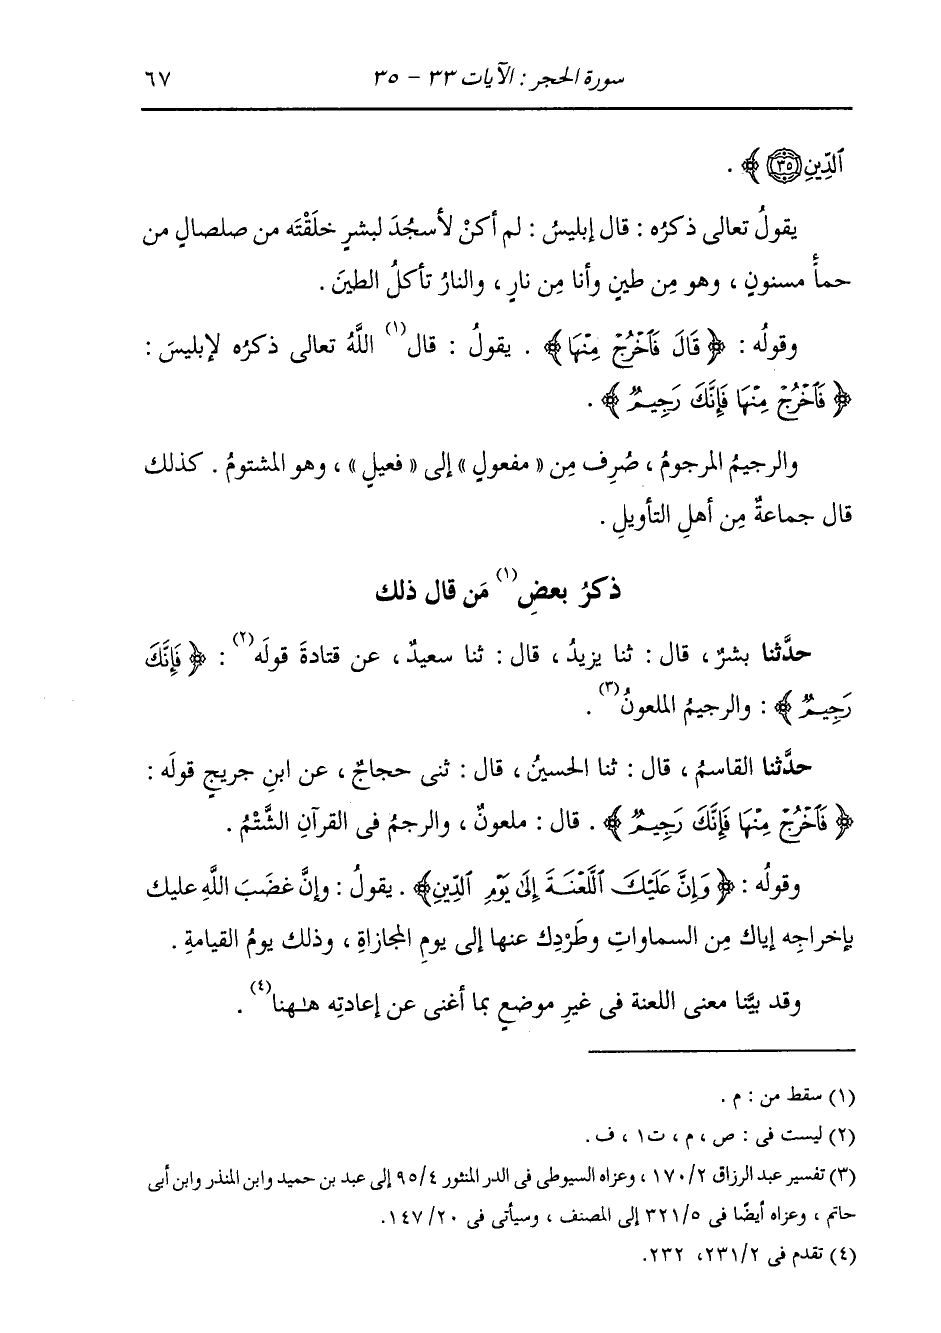 سورة الحجر : الآيات ٣٣ - ٣٥ ٦٧
ٱلدِّينِ ٣٥ ﴾ .
يقولُ تعالى ذكرُه : قال إبليسُ : لم أكنْ لأسجُدَ لبشرٍ خلَقْتَه من صلصالٍ من
حمأً مسنونٍ ، وهو مِن طينٍ وأنا مِن نارٍ ، والنارُ تأكلُ الطينَ .
وقولُه : ﴿ قَالَ فَٱخْرُجْ مِنْهَا ﴾ . يقولُ : قال(١) اللَّهُ تعالى ذكرُه لإبليسَ :
﴿ فَٱخْرُجْ مِنْهَا فَإِنَّكَ رَجِيمٌ ﴾ .
والرجيمُ المرجومُ ، صُرِف مِن « مفعولٍ » إلى « فعيلٍ » ، وهو المشتومُ . كذلك
قال جماعةٌ مِن أهلِ التأويلِ .
ذكرُ بعضِ(١) مَن قال ذلك
حدَّثنا بشرٌ ، قال : ثنا يزيدُ ، قال : ثنا سعيدٌ ، عن قتادةَ قولَه(٢) : ﴿ فَإِنَّكَ
رَجِيمٌ ﴾ : والرجيمُ الملعونُ(٣) .
حدَّثنا القاسمُ ، قال : ثنا الحسينُ ، قال : ثنى حجاجٌ ، عن ابنِ جريجٍ قولَه :
﴿ فَٱخْرُجْ مِنْهَا فَإِنَّكَ رَجِيمٌ ﴾ . قال : ملعونٌ ، والرجمُ فى القرآنِ الشَّتْمُ .
وقولُه : ﴿ وَإِنَّ عَلَيْكَ ٱللَّعْنَةَ إِلَىٰ يَوْمِ ٱلدِّينِ ﴾ . يقولُ : وإنَّ غضَبَ اللَّهِ عليك
بإخراجِه إياك مِن السماواتِ وطَرْدِك عنها إلى يومِ المجازاةِ ، وذلك يومُ القيامةِ .
وقد بيَّنا معنى اللعنة فى غيرِ موضعٍ بما أغنى عن إعادتِه هـٰهنا(٤) .
(١) سقط من : م .
(٢) ليست فى : ص ، م ، ت١ ، ف .
(٣) تفسير عبد الرزاق ١٧٠/٢ ، وعزاه السيوطى فى الدر المنثور ٩٥/٤ إلى عبد بن حميد وابن المنذر وابن أبى
حاتم ، وعزاه أيضًا فى ٣٢١/٥ إلى المصنف ، وسيأتى فى ١٤٧/٢٠.
(٤) تقدم فى ٢٣١/٢، ٢٣٢.